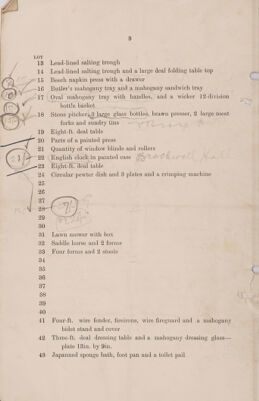 3
LOT
13 Lead-lined salting trough
14 Lead-lined salting trough and a large deal folding table top
15 Beech napkin press with a drawer
16 Butler's mahogany tray and a mahogany sandwich tray
17 Oval mahogany tray with handles, and a wicker 12-division
bottle basket
18 Stone pitcher, 3 large glass bottles, brawn presser, 2 large meat
forks and sundry tins
19 Eight-ft. deal table
20 Parts of a painted press
21 Quantity of window blinds and rollers
22 English clock in painted case
23 Eight-ft. deal table
24 Circular pewter dish and 3 plates and a crimping machine
25
26
27
28
29
30
31 Lawn mower with box
32 Saddle horse and 2 forms
33 Four forms and 2 stools
34
35
36
37
38
39
40
41 Four-ft. wire fender, fireirons, wire fireguard and a mahogany
bidet stand and cover
42 Three-ft. deal dressing table and a mahogany dressing glass—
plate 13in. by 9in.
43 Japanned sponge bath, foot pan and a toilet pail